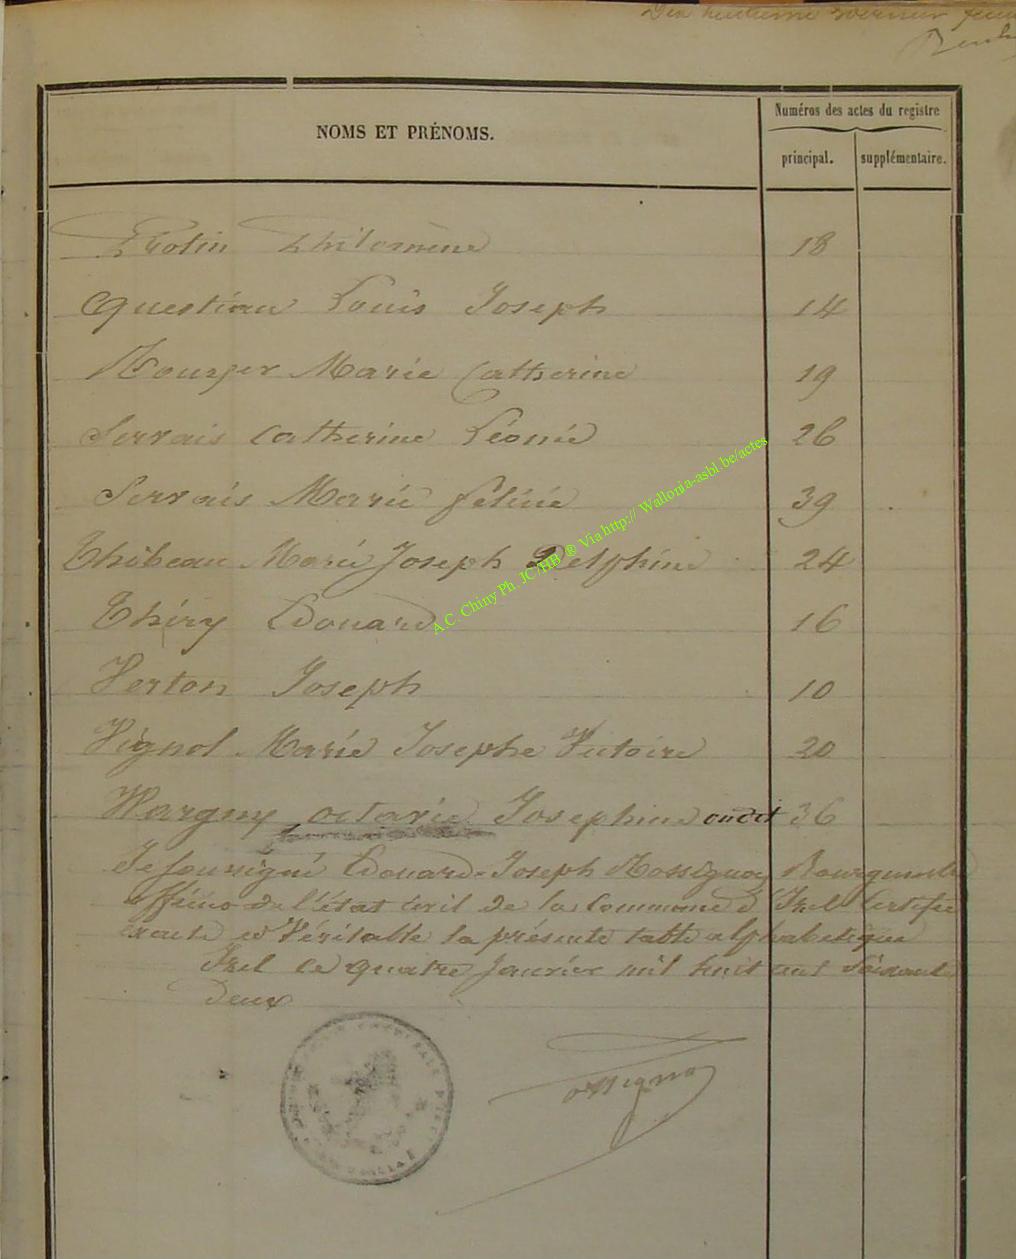 Dix huitième
Numéros des actes du registre
NOMS ET PRÉNOMS.
principal. supplémentaire.
Philomène 18
Questiau Louis Joseph 14
Marie Catherine 19
Servais Catherine Léonie 26
Servais Marie 39
Thibeau Marie Joseph Delphine 24
Thiry Edouard 16
Verton Joseph 10
Vignol Marie Josephe Victoire 20
Wargny octavie Josephine ondit 36
Je soussigné Edouard-Joseph Rossignon Bourgmestre
officier de l'état civil de la commune d'Izel certifie
exacte et Véritable la présente table alphabetique
Izel le quatre Janvier mil huit cent soixante
Deux
A.C. Chiny Ph. JC/HB ® Via http:// Wallonia-asbl.be/actes